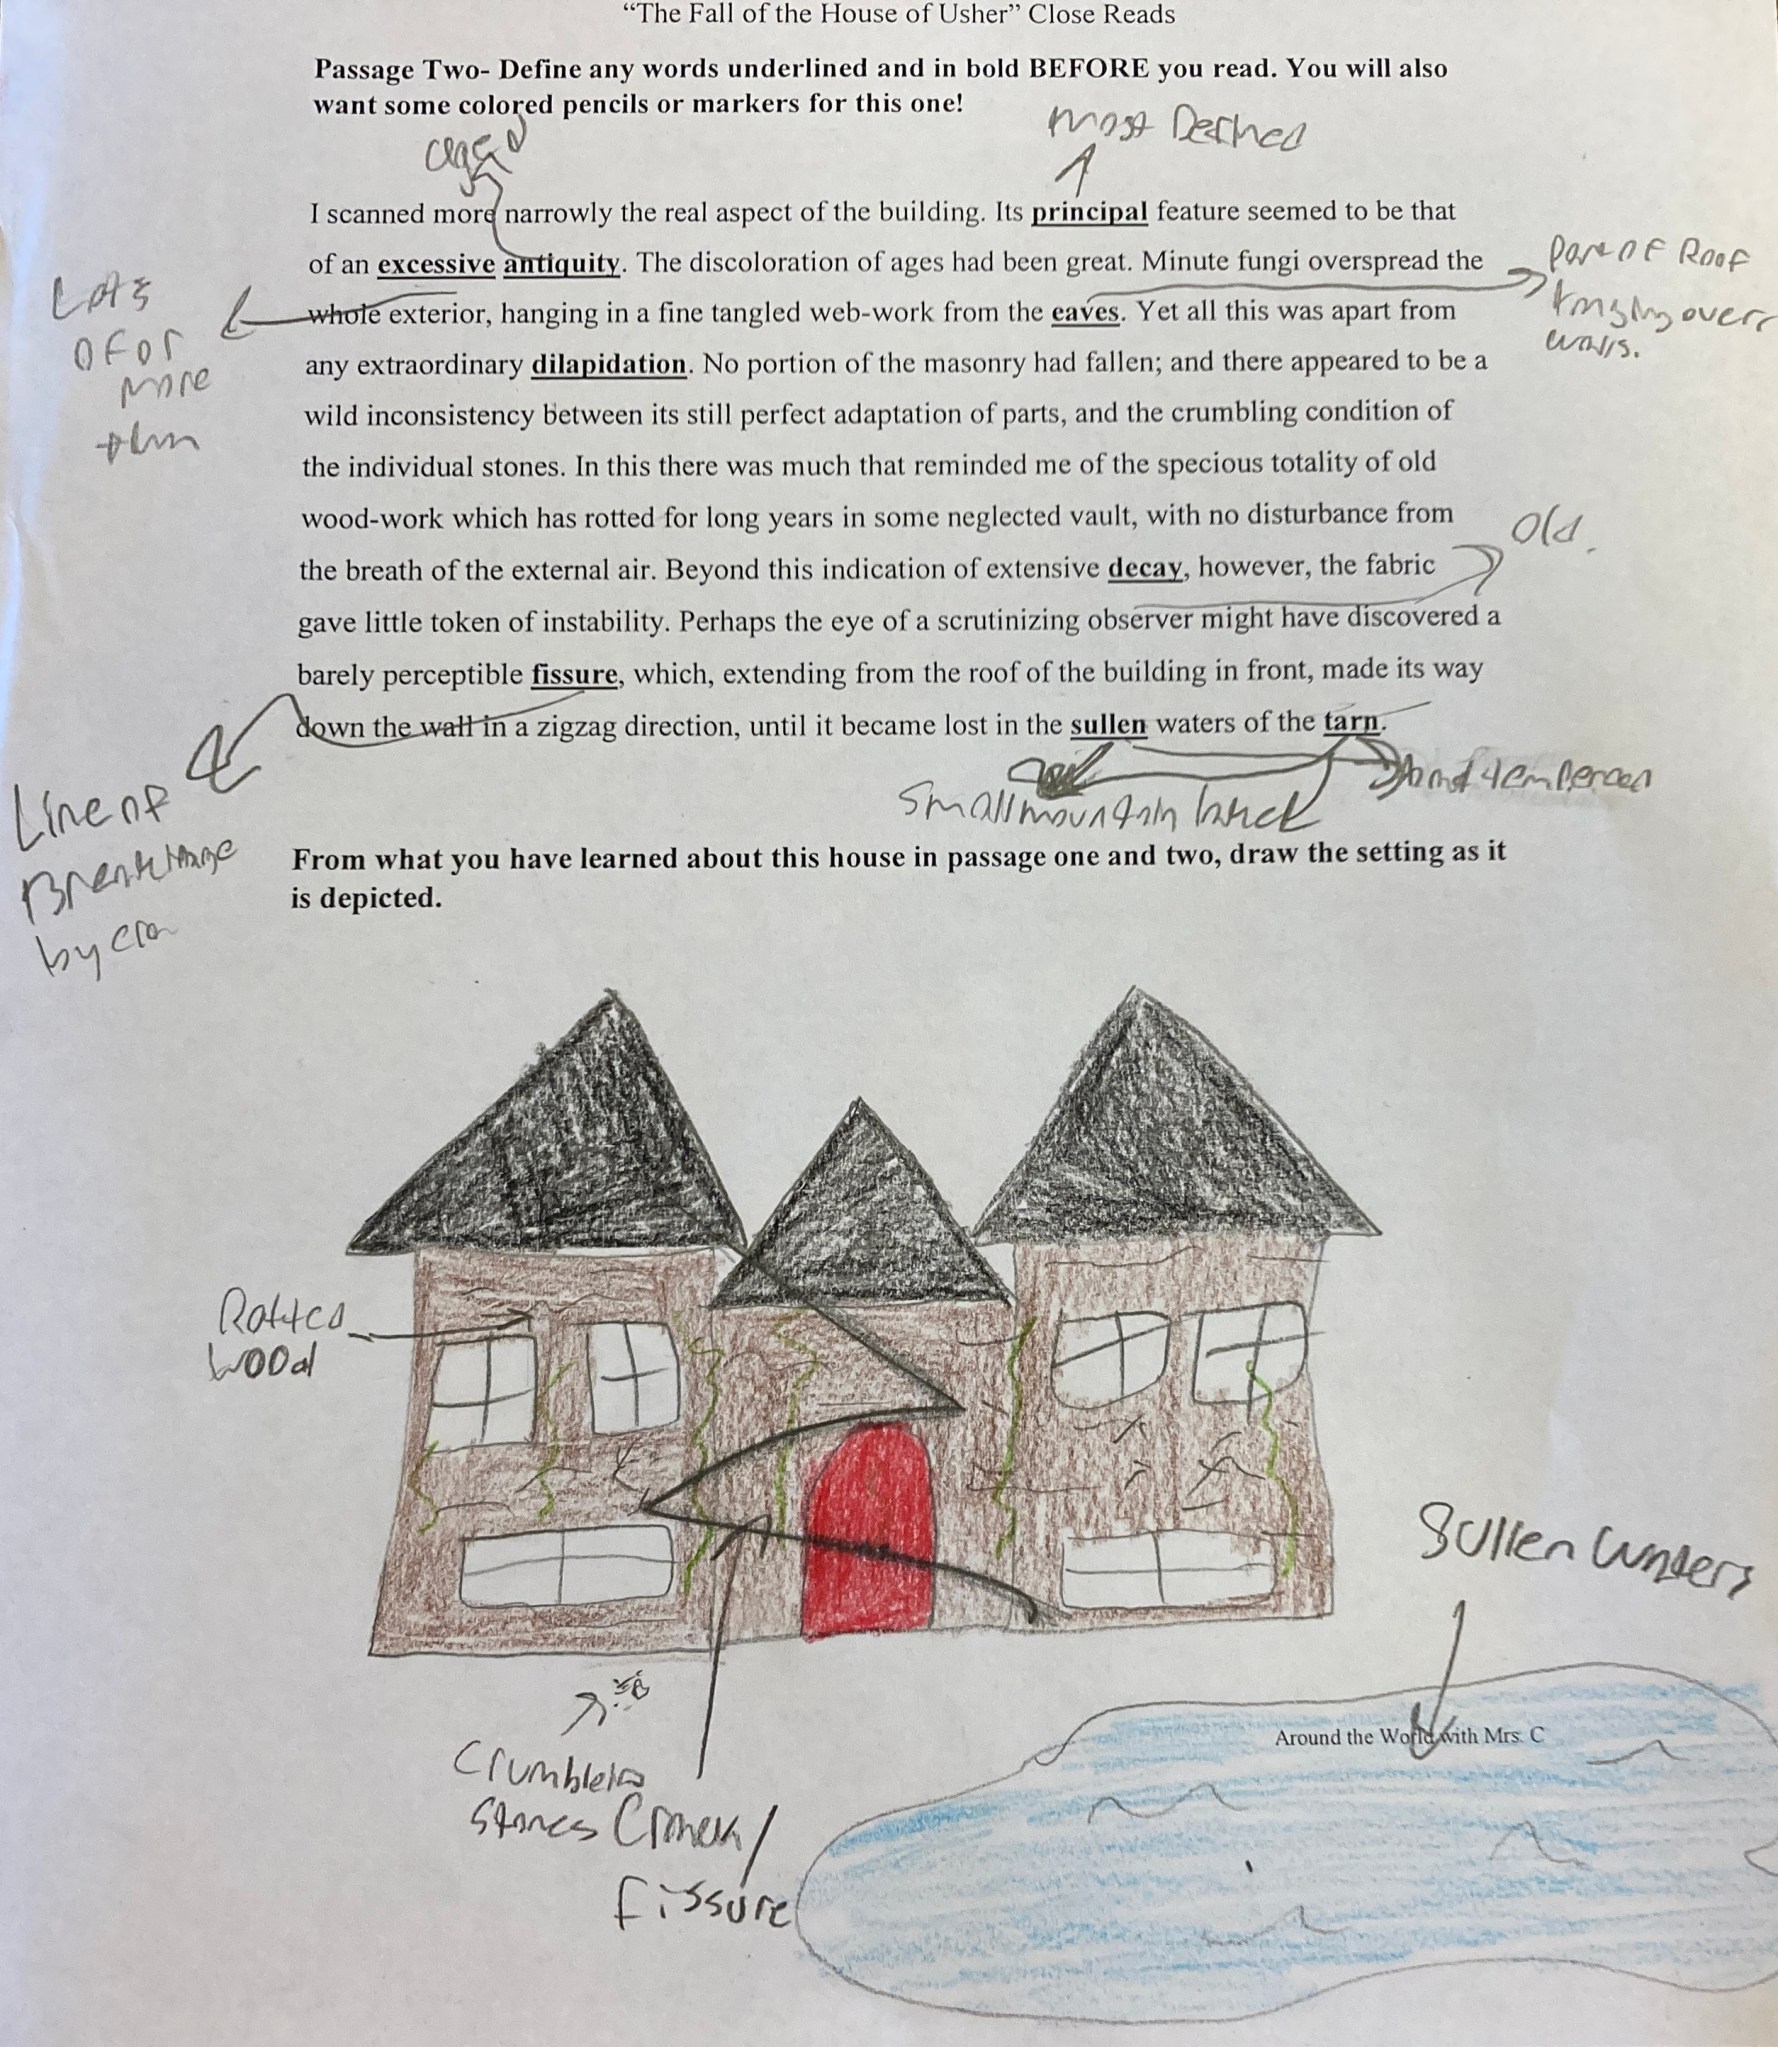 “The Fall of the House of Usher” Close Reads
Passage Two- Define any words underlined and in bold BEFORE you read. You will also
want some colored pencils or markers for this one!
most
I scanned more narrowly the real aspect of the building. Its principal feature seemed to be that
of an excessive antiquity. The discoloration of ages had been great. Minute fungi overspread the
whole exterior, hanging in a fine tangled web-work from the eaves. Yet all this was apart from
any extraordinary dilapidation. No portion of the masonry had fallen; and there appeared to be a
wild inconsistency between its still perfect adaptation of parts, and the crumbling condition of
the individual stones. In this there was much that reminded me of the specious totality of old
wood-work which has rotted for long years in some neglected vault, with no disturbance from
the breath of the external air. Beyond this indication of extensive decay, however, the fabric
gave little token of instability. Perhaps the eye of a scrutinizing observer might have discovered a
barely perceptible fissure, which, extending from the roof of the building in front, made its way
down the wall in a zigzag direction, until it became lost in the sullen waters of the tarn.
Lots
of or
more
Part of Roof
over
walls.
Old.
Small mountain
Line of
by
From what you have learned about this house in passage one and two, draw the setting as it
is depicted.
Rotted
Wood
Sullen Waters
Around the World with Mrs. C
Stones
Crack/
fissure